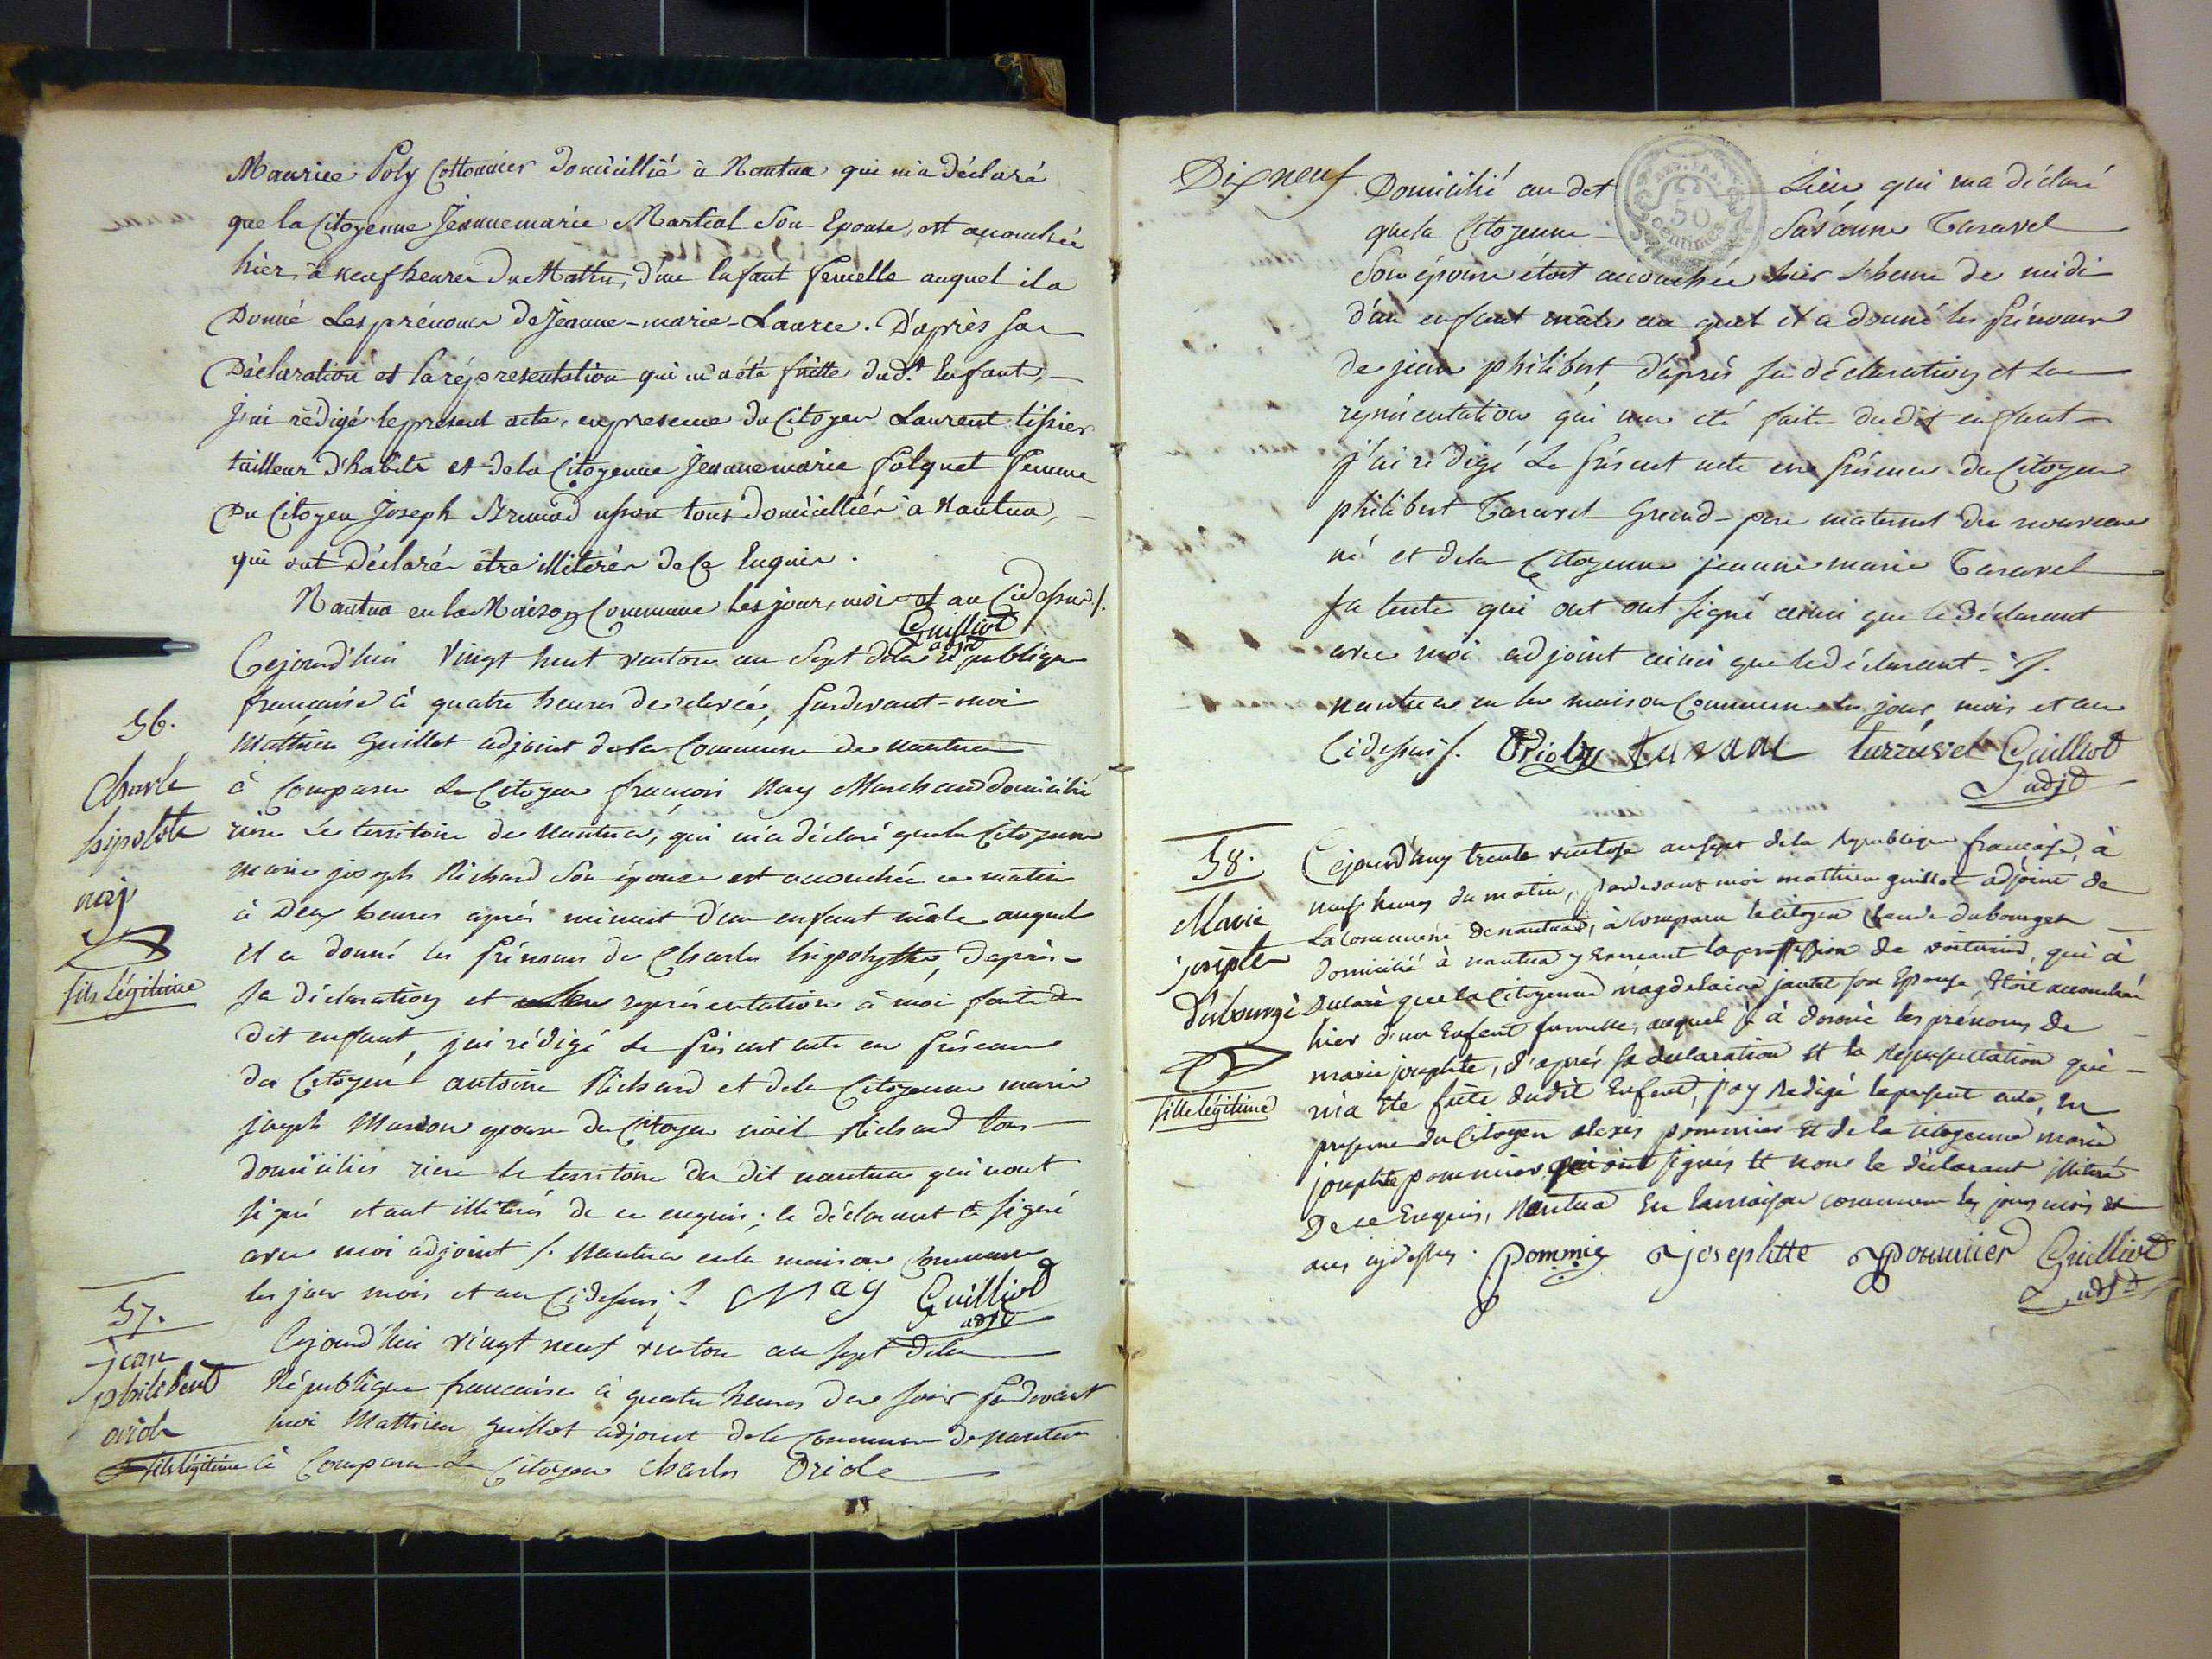 Maurice Poly Cottonnier domicillié à Nantua qui m'a déclaré
que la Citoyenne Jeanne marie Martial Son Epouse, est accouchée
hier, à neuf heures du Matin, d'un Enfant femelle auquel il a
Donné Les prénoms de Jeanne-marie-Laurce. D'après sa
Déclaration et la répresentation qui m'a été faitte dud.t Enfant,
J'ai rédigé le présent acte, en presence du Citoyen Laurent tissier
tailleur d'habits et de la Citoyenne Jeanne marie folquet femme
Du Citoyen Joseph tous domicilliés à Nantua,
qui ont Déclarés être illitérés de ce Enquis.
Nantua en la Maison Commune les jour, mois et an Cidessus /.
Guilliot
adjt
Cejourd'hui Vingt huit ventose an Sept de la république
française à quatre heures de relevée, pardevant-moi
56.
Mathieu Guillot adjoint de la Commune de nantua
Charle
à Comparu Le Citoyen françois May Marchand domicilié
hipolote
rière Le territoire de Nantua, qui m'a déclaré que la Citoyenne
marie joseph Richard Son épouse est accouchée ce matin
maj
à Deux heures après minuit d'un enfant mâle auquel
il a donné les Prénoms de Charles hippolytte, d'après
fils légitime
sa déclaration et représentation à moi faite du
dit enfant, j'ai rédigé Le présent acte en présence
du Citoyen antoine Richard et de la Citoyenne marie
joseph épouse du Citoyen noël Richard tous
domiciliés rière le territoire du dit nantua qui n'ont
signé étant illitérés de ce enquis; le déclarant a signé
avec moi adjoint /. Nantua en la maison Commune
les jour mois et an Cidessus /. May Guilliot
adjt
57.
jean
Cejourd'hui vingt neuf ventose an sept de la
philibert
République française à quatre heures du soir pardevant
oriole
moi Mathieu Guillot adjoint de la Commune de nantua
fils légitime
à Comparu Le Citoyen Charles Oriole
Dix neuf
Domicilié au dit Lieu qui m'a déclaré
REP. FRA.
50
centimes
que la Citoyenne Susanne Taravel
Son épouse étoit accouchée hier à heure de midi
d'un enfant mâle au quel il a donné les prénoms
de jean philibert, d'après sa déclaration et la
représentation qui m'a été faite dudit enfant
j'ai rédigé Le présent acte en présence du Citoyen
philibert Taravel Grand-pere maternel du nouveau
né et de la Citoyenne jeanne marie Taravel
sa tente qui ont ont signé ainsi que le déclarant
avec moi adjoint ainsi que le déclarant /.
nantua en la maison Commune les jour, mois et an
Cidessus /. Guilliot
adjt
58.
Marie
josepte
dubourgè
fille légitime
Cejourd'huy trente ventose an sept de la Republique française, à
neuf heures du matin, pardevant moi mathieu guillot adjoint de
La Commune de nantua, à comparu le citoyen Claude dubourget
domicilié à nantua y Exercant la proffession de voiturier, qui à
Declaré que la Citoyenne magdelaine jantet son Epouse, étoit accouchée
hier d'un Enfent fumelle, auquel il à donné les prénoms de
marie josephte, d'aprés sa declaration et la representation qui
m'a ete faite dudit Enfent, j'ay Redigé le present acte, en
presence du Citoyen alexis pommier et de la citoyenne marie
josephte pommier qui ont signés et nons le déclarant illitéré
De ce Enquis, Nantua En la maison commune les jours mois et
ans cydessus. pommier josephtte pommier Guilliot
adjt